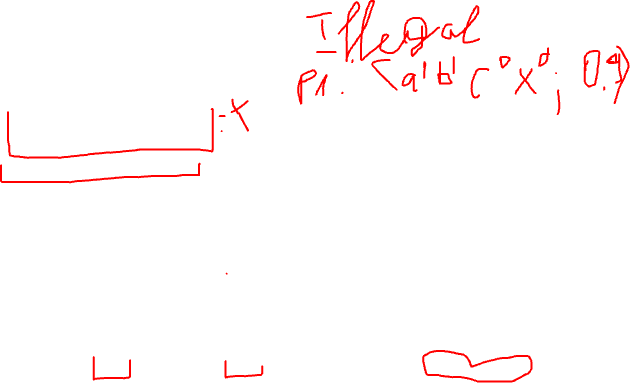 Illegal
P1. <a¹b¹c⁰x⁰; 0.9>
:x